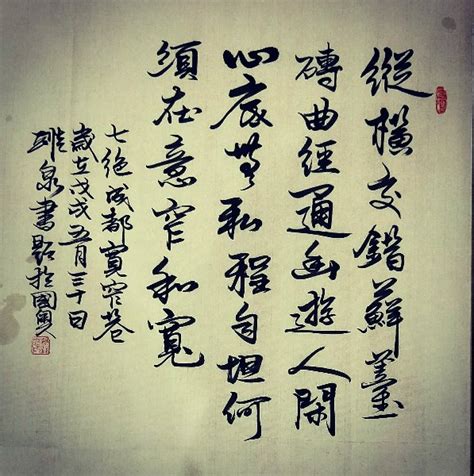 縱橫交錯蘚薹
磚曲經通幽遊人閑
心底無私程自坦何
須在意窄和寬
七絕成都寬窄巷
歲在戊戌五月三十日
泉書於國奧